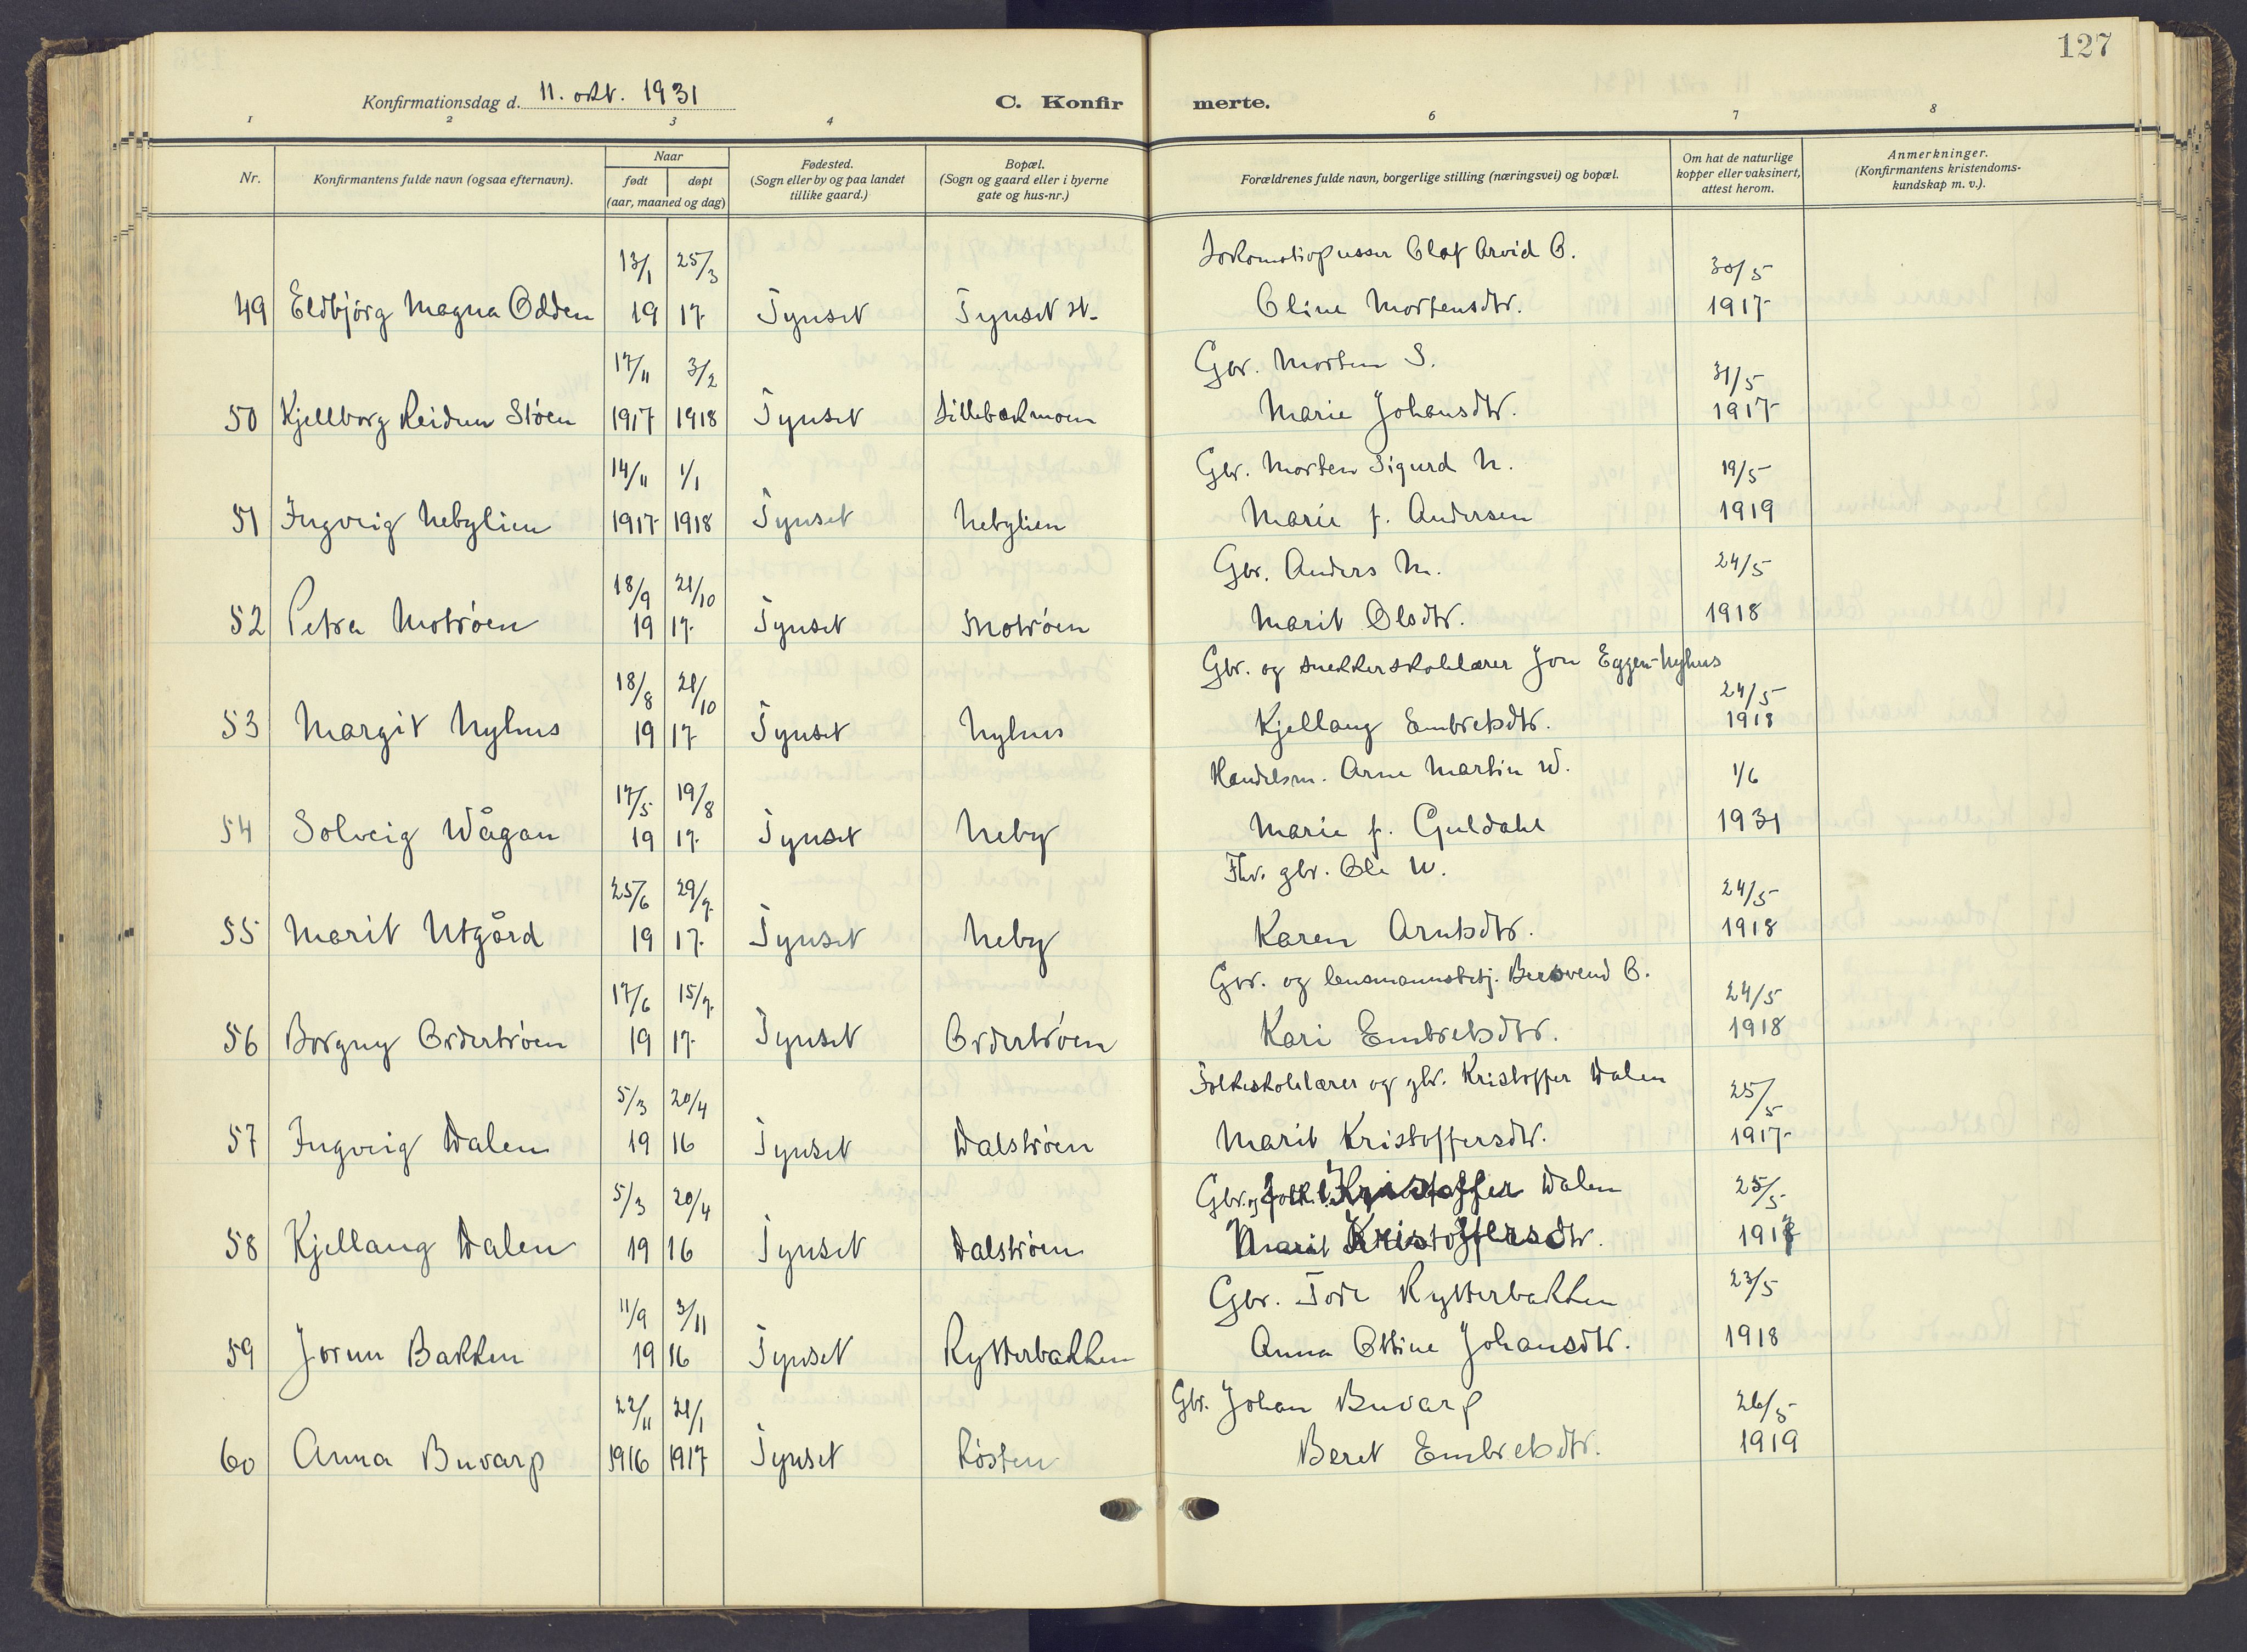 127
Konfirmationsdag d. 11. okt. 1931
C. Konfirmerte.
1 2 3 4 6 7 8
Nr.
Konfirmantens fulde navn (ogsaa efternavn).
Naar
født døpt
(aar, maaned og dag)
Fødested.
(Sogn eller by og paa landet
tillike gaard.)
Bopæl.
(Sogn og gaard eller i byerne
gate og hus-nr.)
Forældrenes fulde navn, borgerlige stilling (næringsvei) og bopæl.
Om hat de naturlige
kopper eller vaksinert,
attest herom.
Anmerkninger.
(Konfirmantens kristendoms-
kundskap m. v.).
13/1 25/3 Lokomotivpusser Olaf Arvid O. 30/5
49 Eldbjørg Magna Odden 19 17 Tynset Tynset st. Oline Mortensdtr. 1917
17/11 3/2 Gbr. Morten S. 31/5
50 Kjellborg Reidun Støen 1917 1918 Tynset Lillebækmoen Marie Johansdtr. 1917
14/11 1/1 Gbr. Morten Sigurd N. 19/5
51 Ingveig Nebylien 1917 1918 Tynset Nebylien Marie f. Andersen 1919
18/9 21/10 Gbr. Anders M. 24/5
52 Petra Motrøen 19 17 Tynset Motrøen Marit Olsdtr. 1918
18/8 21/10 Gbr. og snekkerskolelærer Jon Eggen-Nyhus 24/5
53 Margit Nyhus 19 17 Tynset Nyhus Kjellaug Embretsdtr. 1918
17/5 19/8 Handelsm. Arne Martin W. 1/6
54 Solveig Wågan 19 17 Tynset Neby Marie f. Guldahl 1931
25/6 29/7 Fhv. gbr. Ole U. 24/5
55 Marit Utgård 19 17 Tynset Neby Karen Arntsdtr. 1918
17/6 15/7 Gbr. og lensmannsbetj. Bersvend O. 24/5
56 Borgny Ordertrøen 19 17 Tynset Ordertrøen Kari Embretsdtr. 1918
5/3 20/4 Folkeskolelærer og gbr. Kristoffer Dalen 25/5
57 Ingveig Dalen 19 16 Tynset Dalstrøen Marit Kristoffersdtr. 1917
5/3 20/4 Gbr. og folk.l. Kristoffer Dalen 25/5
58 Kjellaug Dalen 19 16 Tynset Dalstrøen Marit Kristoffersdtr. 1917
11/9 3/11 Gbr. Tore Rytterbakken 23/5
59 Jorun Bakken 19 16 Tynset Rytterbakken Anna Ottine Johansdtr. 1918
22/11 21/1 Gbr. Johan Buvarp 26/5
60 Anna Buvarp 1916 1917 Tynset Røsten Beret Embretsdtr. 1919